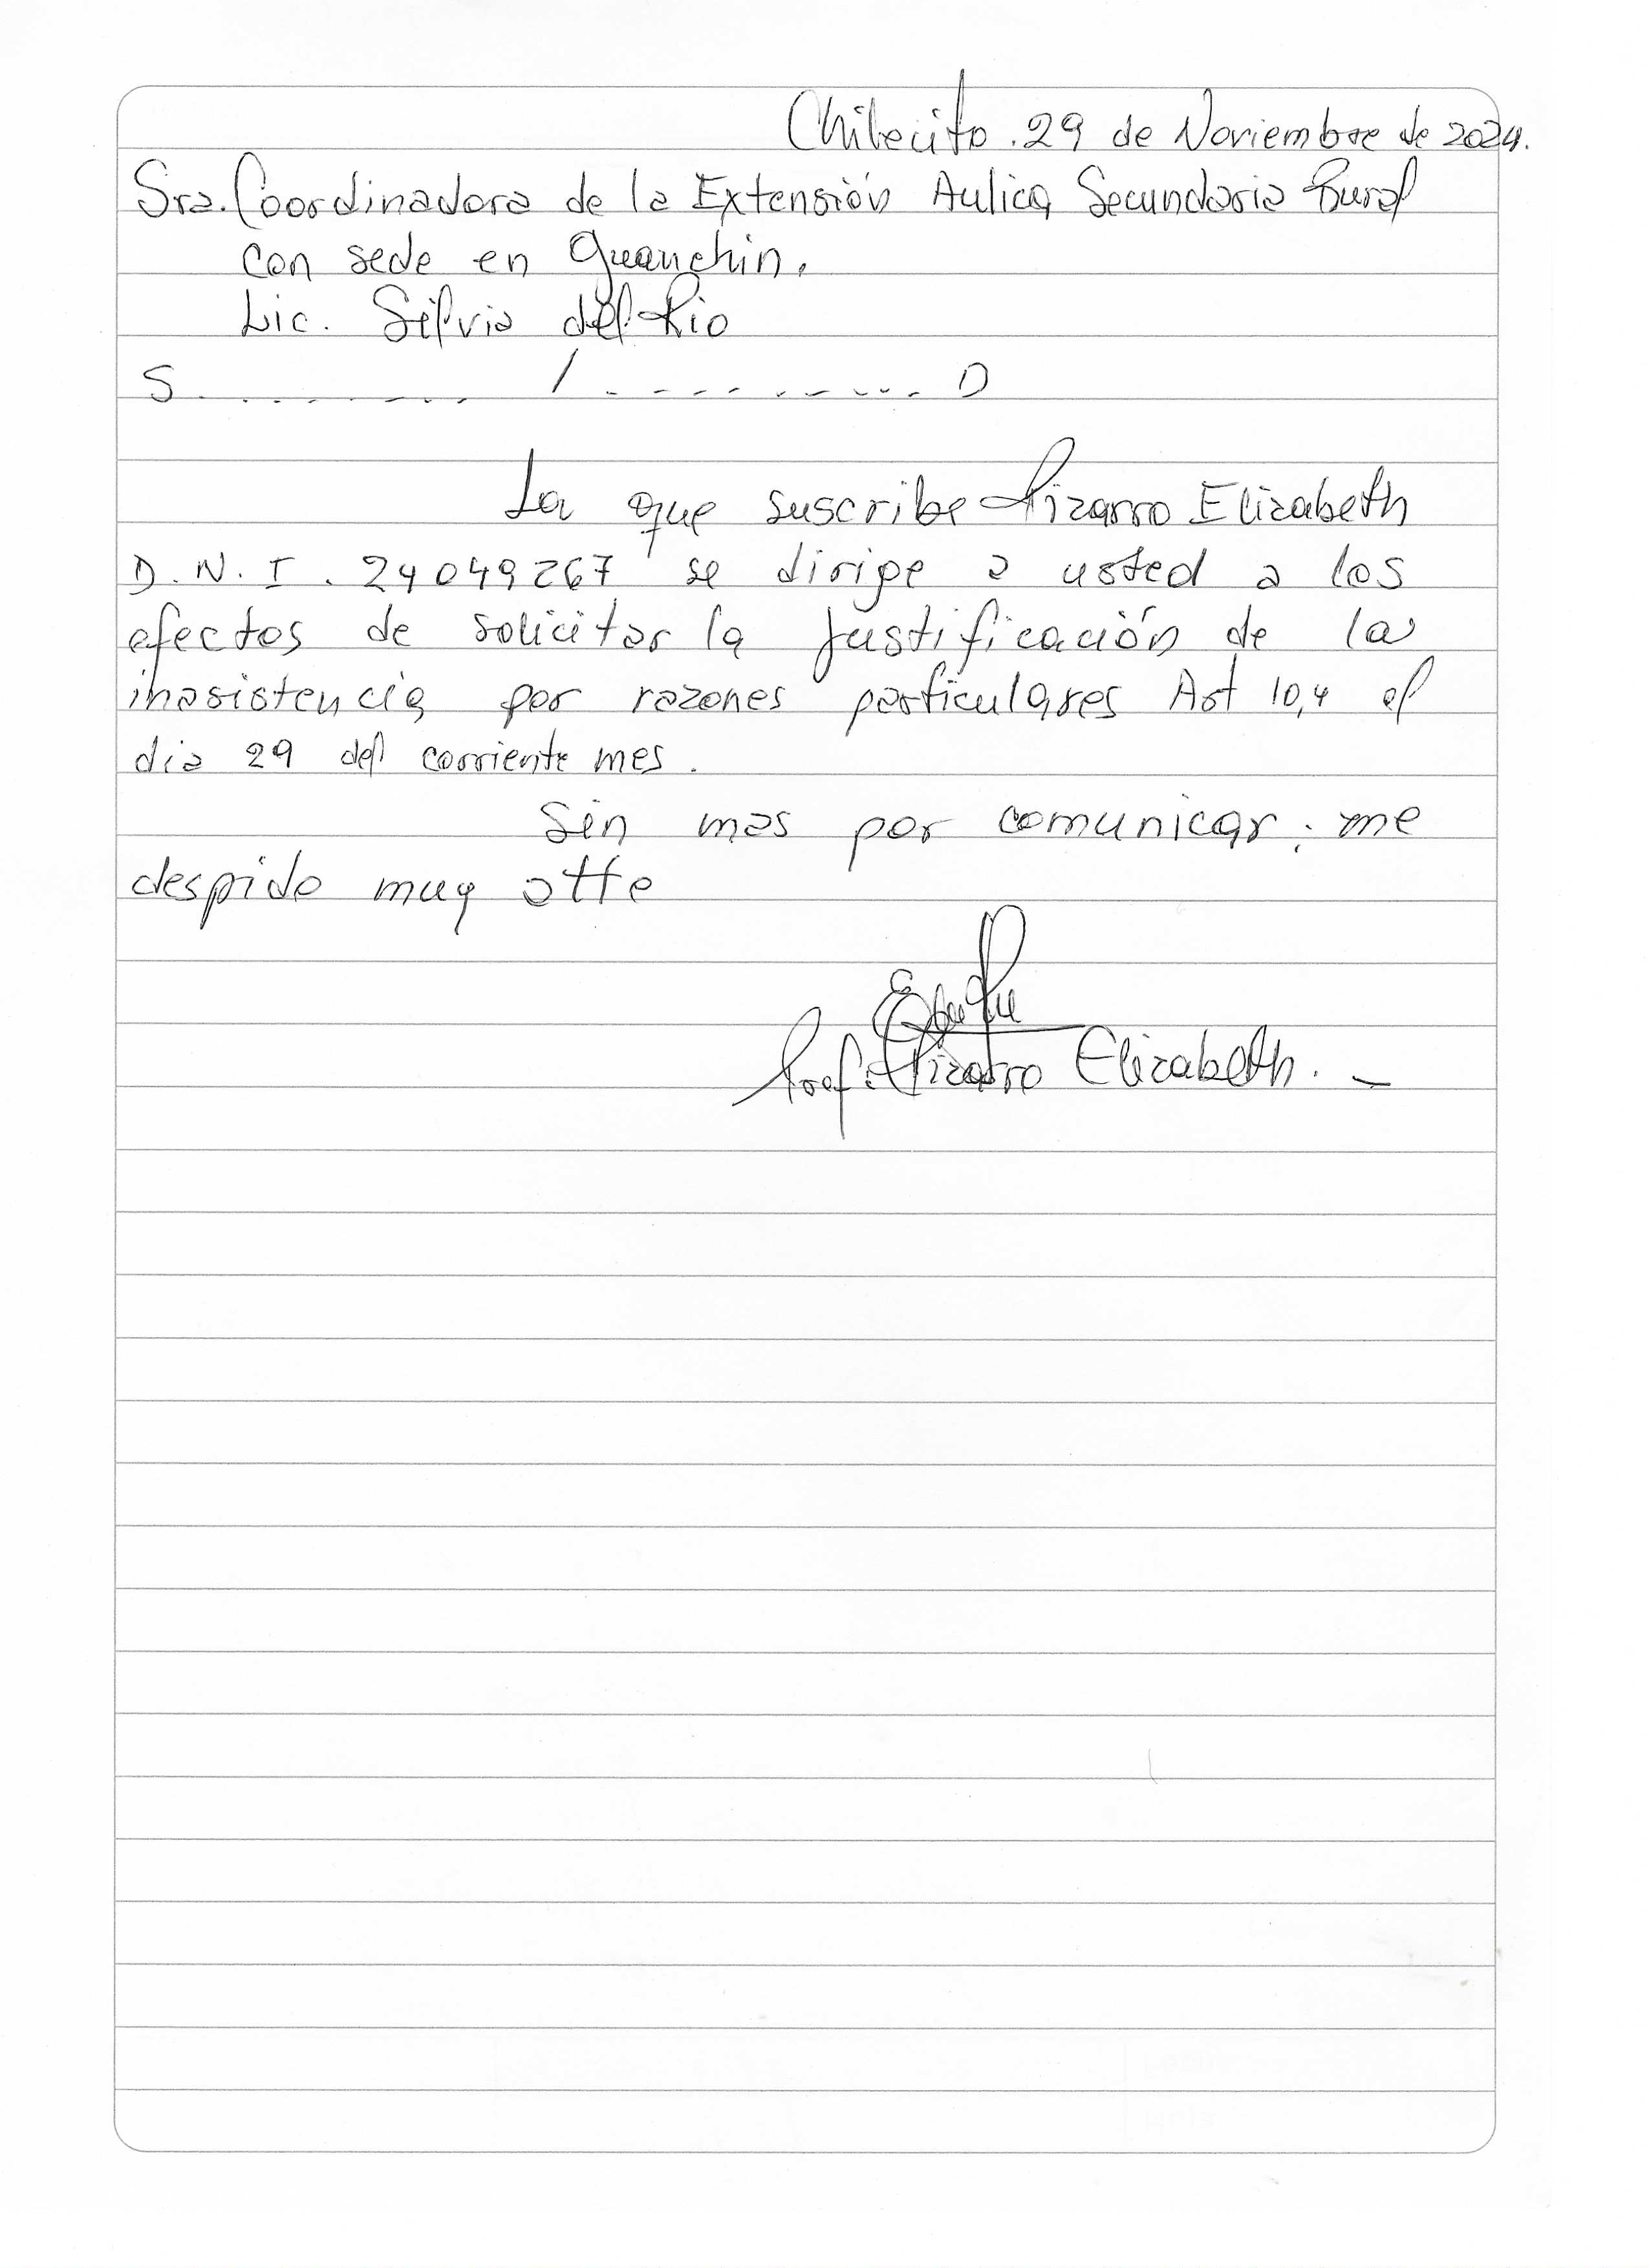 Chilecito. 29 de Noviembre de 2024.
Sra. Coordinadora de la Extensión Aulica Secundaria Rural
con sede en Guanchin.
Lic. Silvia del Rio
S......../..........D
La que suscribe Pizarro Elizabeth
D.N.I. 24049267 se dirige a usted a los
efectos de solicitar la justificación de la
inasistencia por razones particulares Art 10,4 el
dia 29 del corriente mes.
Sin mas por comunicar; me
despido muy atte
Prof. Pizarro Elizabeth. -